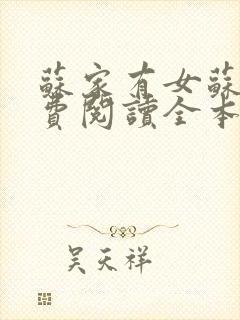 蘇家有女蘇
費閱讀全本
吳天祥